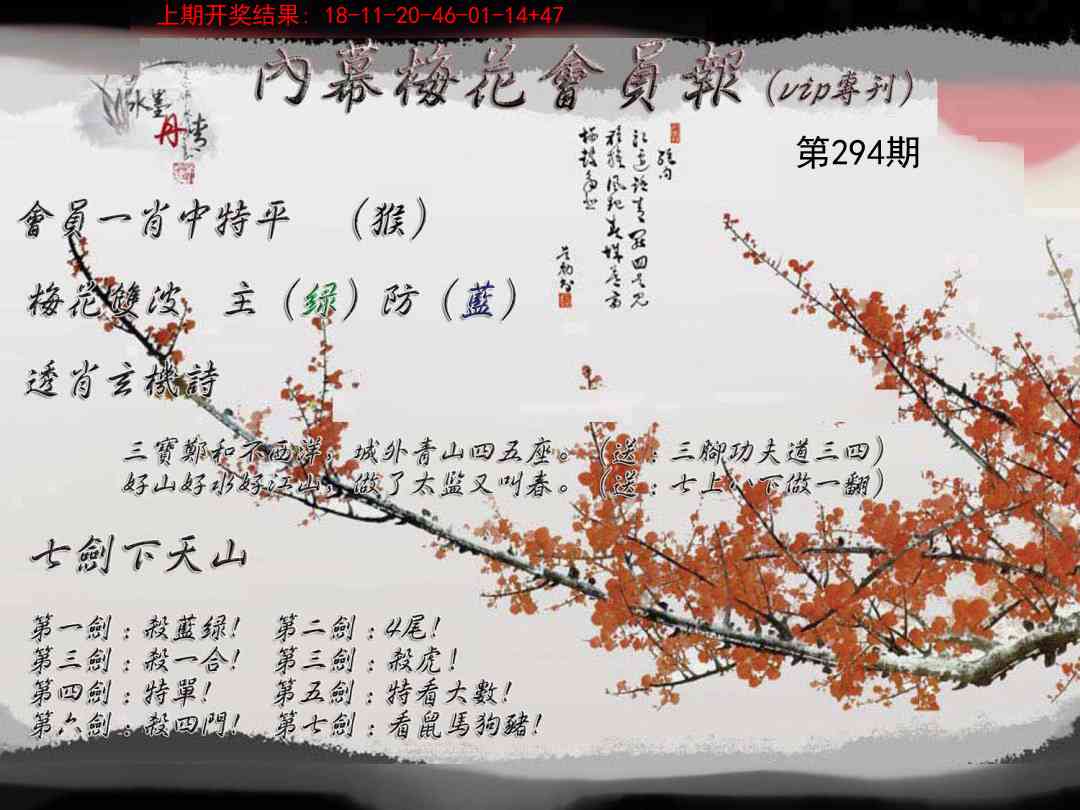 上期开奖结果: 18-11-20-46-01-14+47
內幕梅花會員報(vip專刊)
水墨
丹青
第294期
會員一肖中特平 (猴)
梅花雙波 主(绿)防(藍)
透肖玄機詩
三寶鄭和不西洋，城外青山四五座。(送:三腳功夫道三四)
好山好水好江山，做了太監又叫春。(送:七上八下做一翻)
七劍下天山
第一劍:殺藍绿! 第二劍:4尾!
第三劍:殺一合! 第三劍:殺虎!
第四劍:特單! 第五劍:特看大數!
第六劍:殺四門! 第七劍:看鼠馬狗豬!